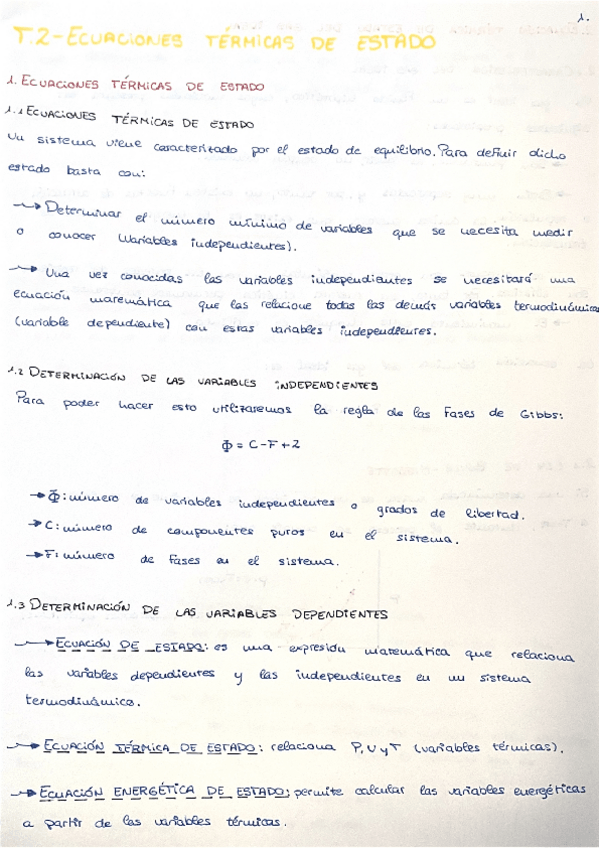 1.
T.2-ECUACIONES TÉRMICAS DE ESTADO
1. ECUACIONES TÉRMICAS DE ESTADO
1.1 ECUACIONES TÉRMICAS DE ESTADO
Un sistema viene caracterizado por el estado de equilibrio. Para definir dicho
estado basta con:
→ Determinar el número mínimo de variables que se necesita medir
o conocer (variables independientes).
→ Una vez conocidas las variables independientes se necesitará una
ecuación matemática que las relacione todas las demás variables termodinámicas
(variable dependiente) con estas variables independientes.
1.2 DETERMINACIÓN DE LAS VARIABLES INDEPENDIENTES
Para poder hacer esto utilizaremos la regla de las Fases de Gibbs:
Φ = C-F+2
→ Φ: número de variables independientes o grados de libertad.
→ C: número de componentes puros en el sistema.
→ F: número de fases en el sistema.
1.3 DETERMINACIÓN DE LAS VARIABLES DEPENDIENTES
→ ECUACIÓN DE ESTADO: es una expresión matemática que relaciona
las variables dependientes y las independientes en un sistema
termodinámico.
→ ECUACIÓN TÉRMICA DE ESTADO: relaciona P, V y T (variables térmicas).
→ ECUACIÓN ENERGÉTICA DE ESTADO: permite calcular las variables energéticas
a partir de las variables térmicas.